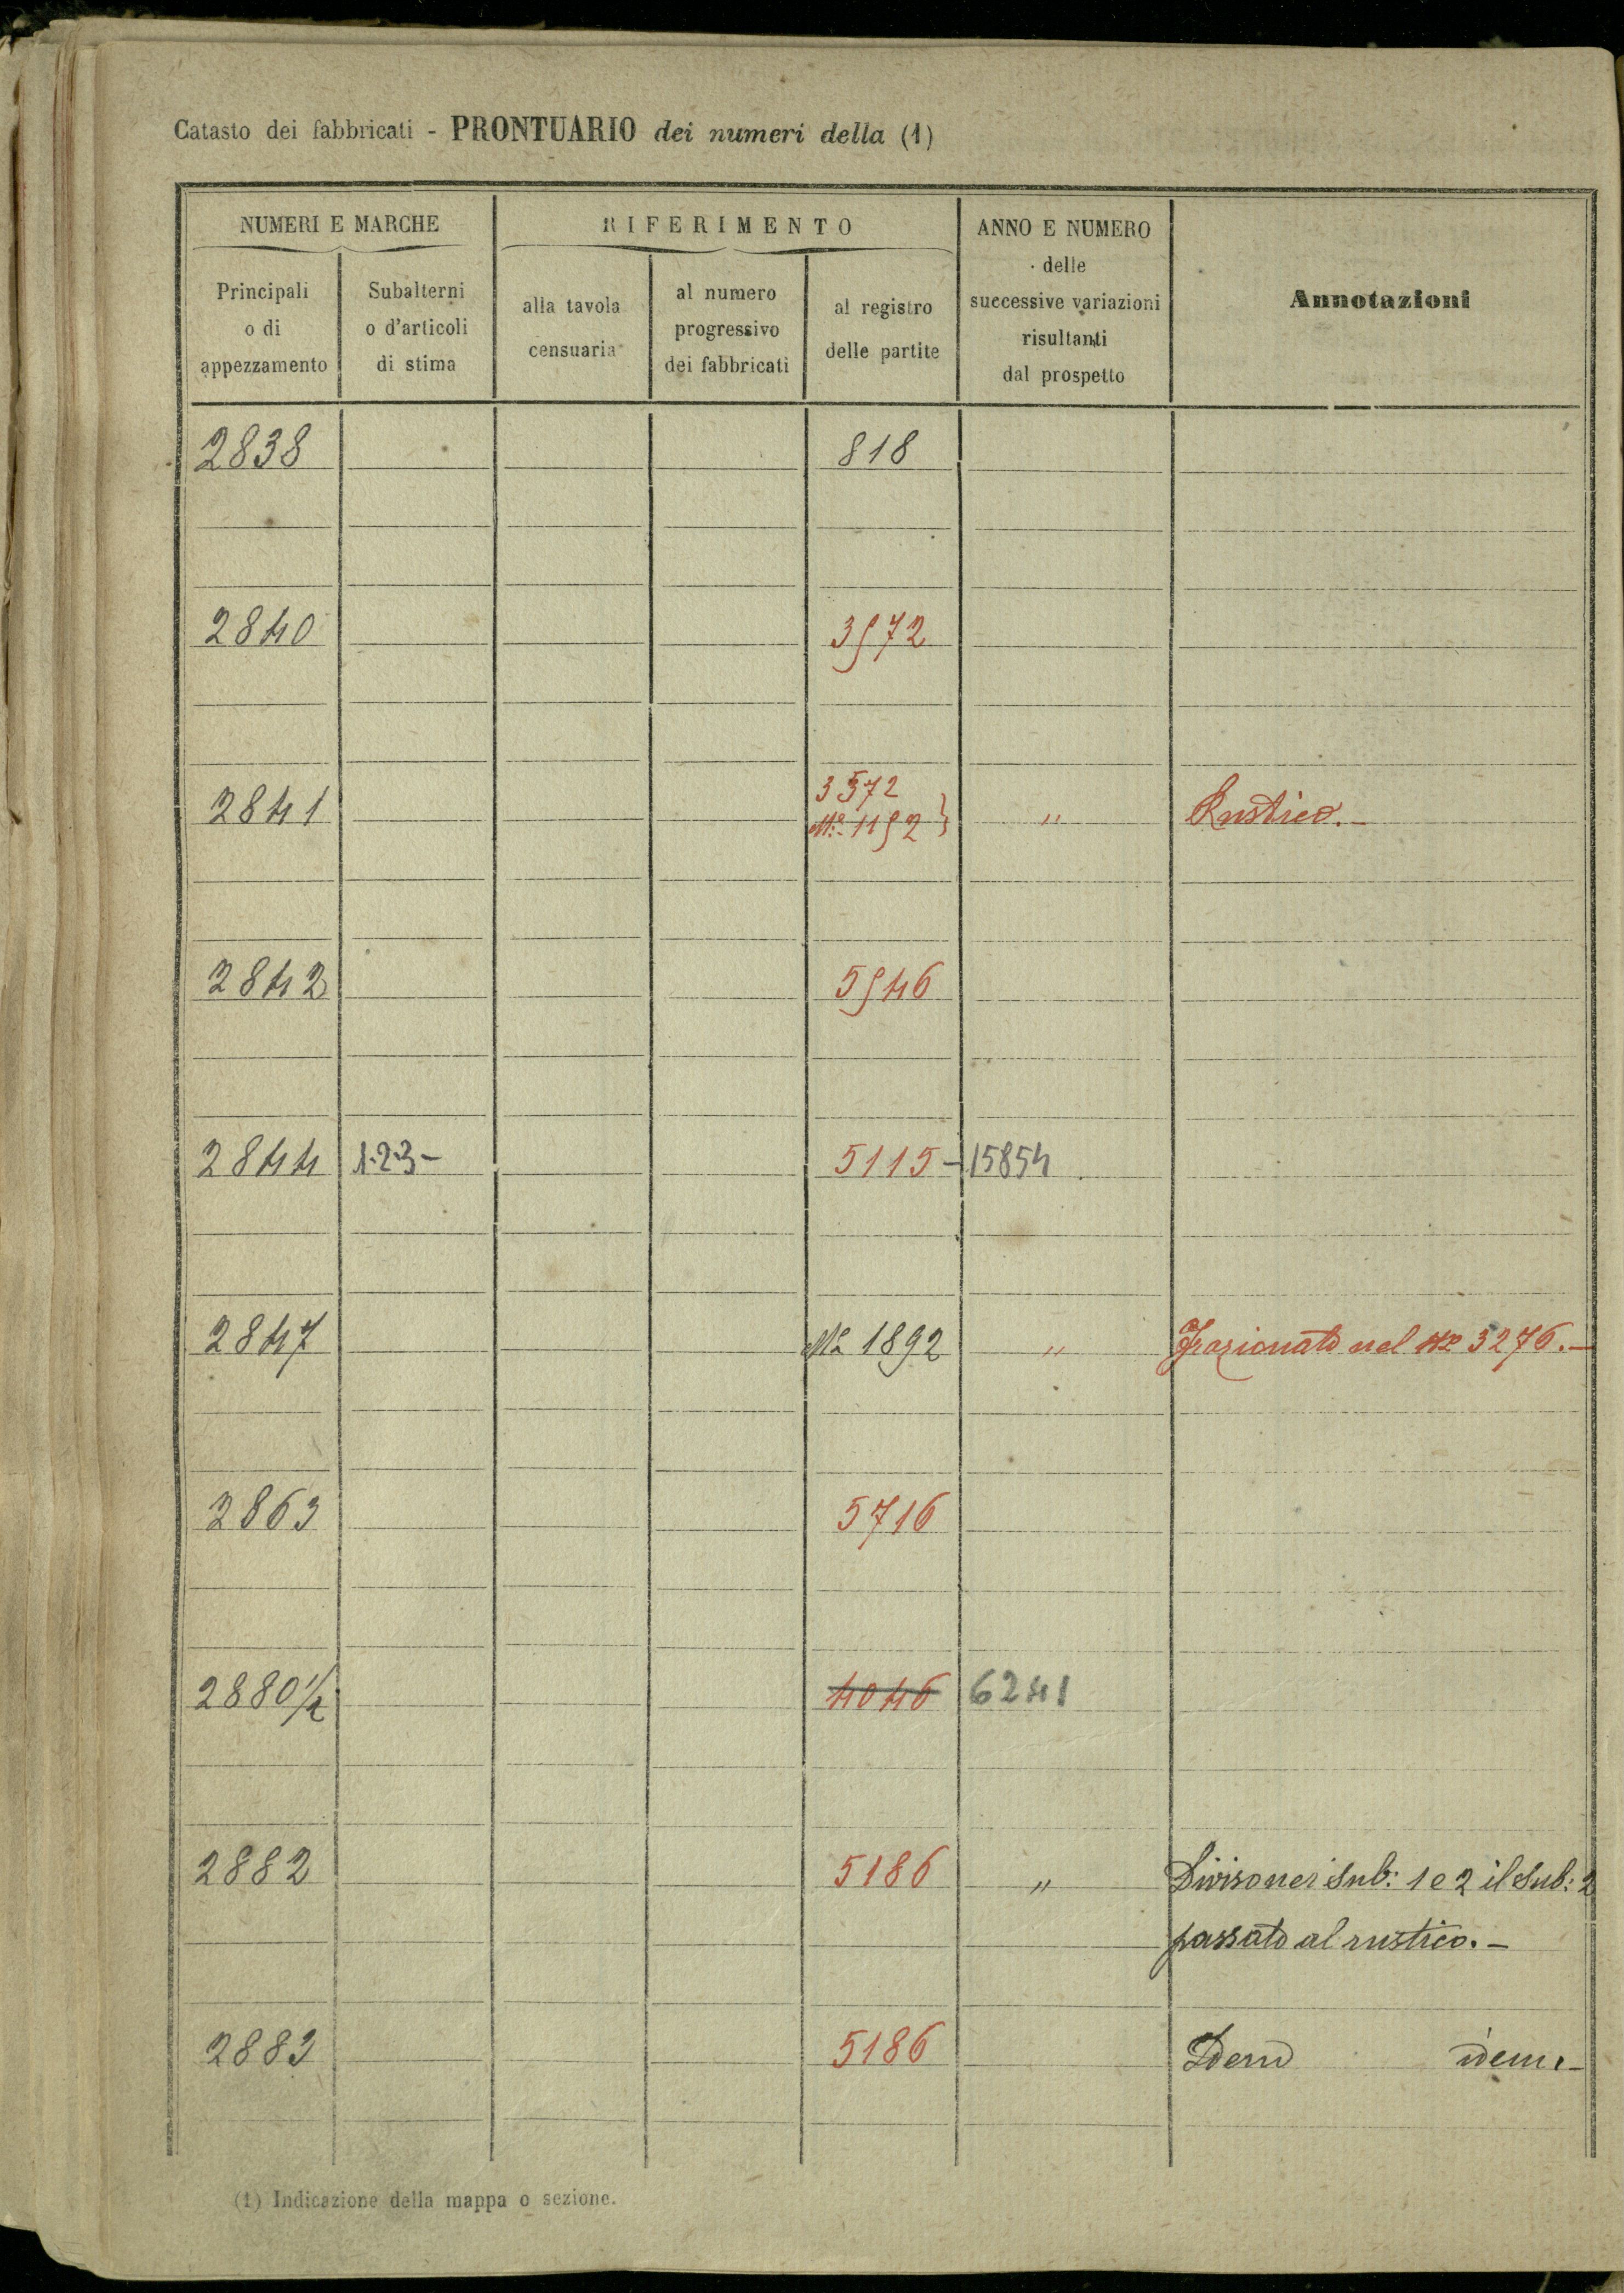 Catasto dei fabbricati - PRONTUARIO dei numeri della (1)
NUMERI E MARCHE
RIFERIMENTO
ANNO E NUMERO
delle
successive variazioni
risultanti
dal prospetto
Annotazioni
Principali
o di
appezzamento
Subalterni
o d'articoli
di stima
alla tavola
censuaria
al numero
progressivo
dei fabbricati
al registro
delle partite
2838 818
2840 3572
3572
2841 Mo 1152 } " Rustico.-
2842 5546
2844 1.2.3- 5115- 15854
2847 No 1892 " Frazionato nel No 3276.-
2863 5716
2880 1/2 4046 6241
2882 5186 " Diviso nei Sub: 1 e 2 il Sub: 2
passato al rustico.-
2883 5186 Idem idem.-
(1) Indicazione della mappa o sezione.